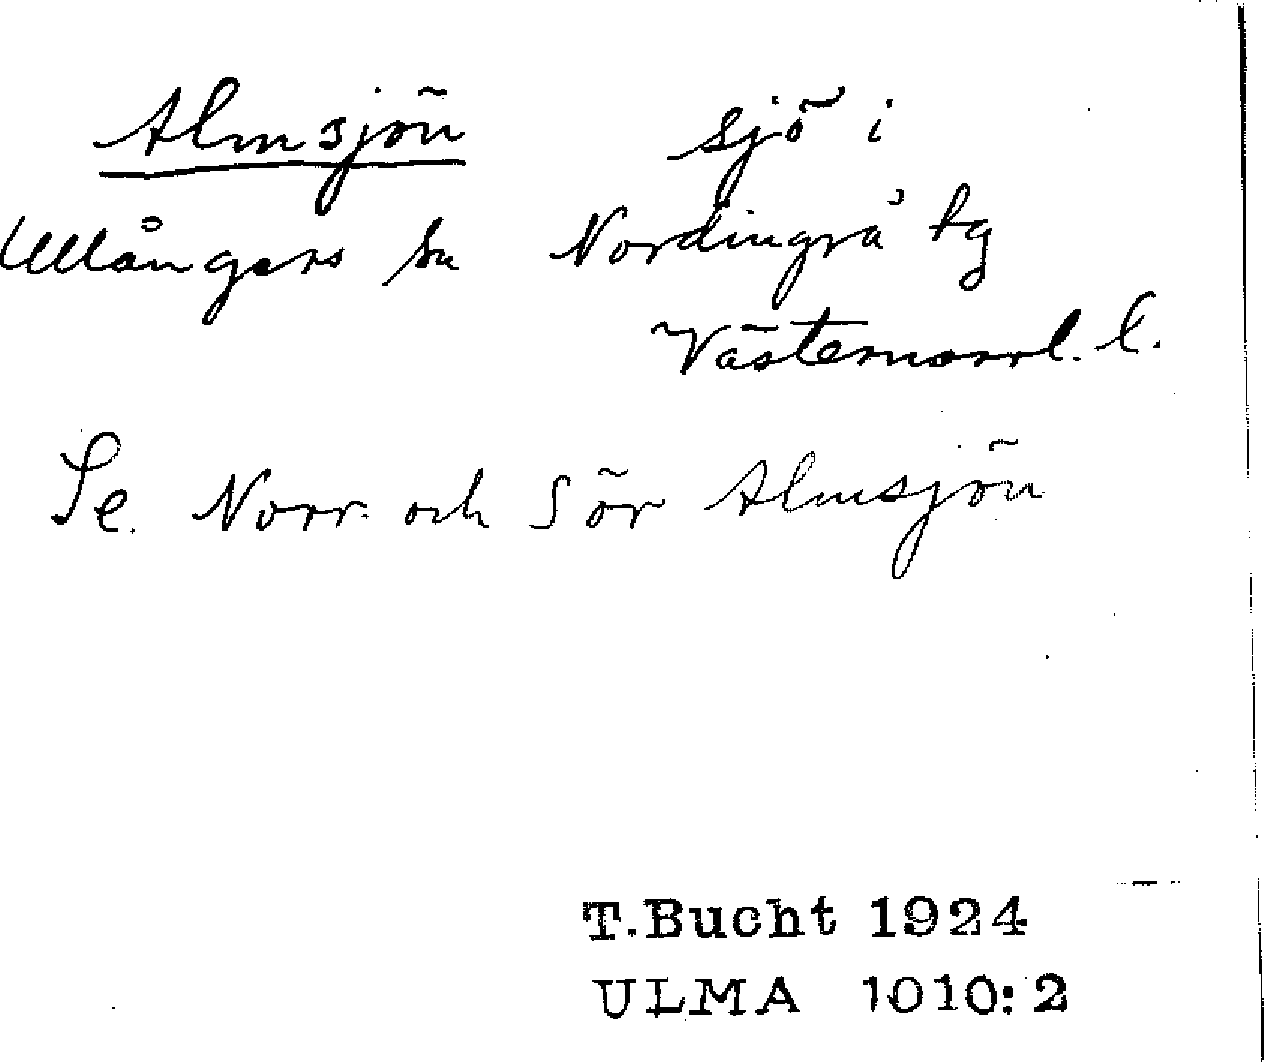 Almsjön sjö i
Ullångers sn Nordingrå tg
Västernorrl. l.
Se. Norr. och Sör Almsjön
T.Bucht 1924
ULMA 1010:2